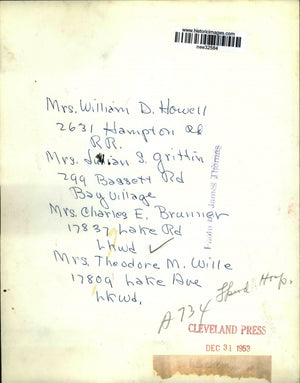 www.historicimages.com
new32584
Mrs. William D. Howell
2631 Hampton Rd
R.R.
Mrs. S. Griffin
299 Bassett Rd
Bay Village
Mrs. Charles E. Brunner
17837 Lake Rd
Lkwd ✓
Mrs. Theodore M. Wille
17809 Lake Ave
Lkwd.
Photo by James Thomas
A 734
CLEVELAND PRESS
DEC 31 1953